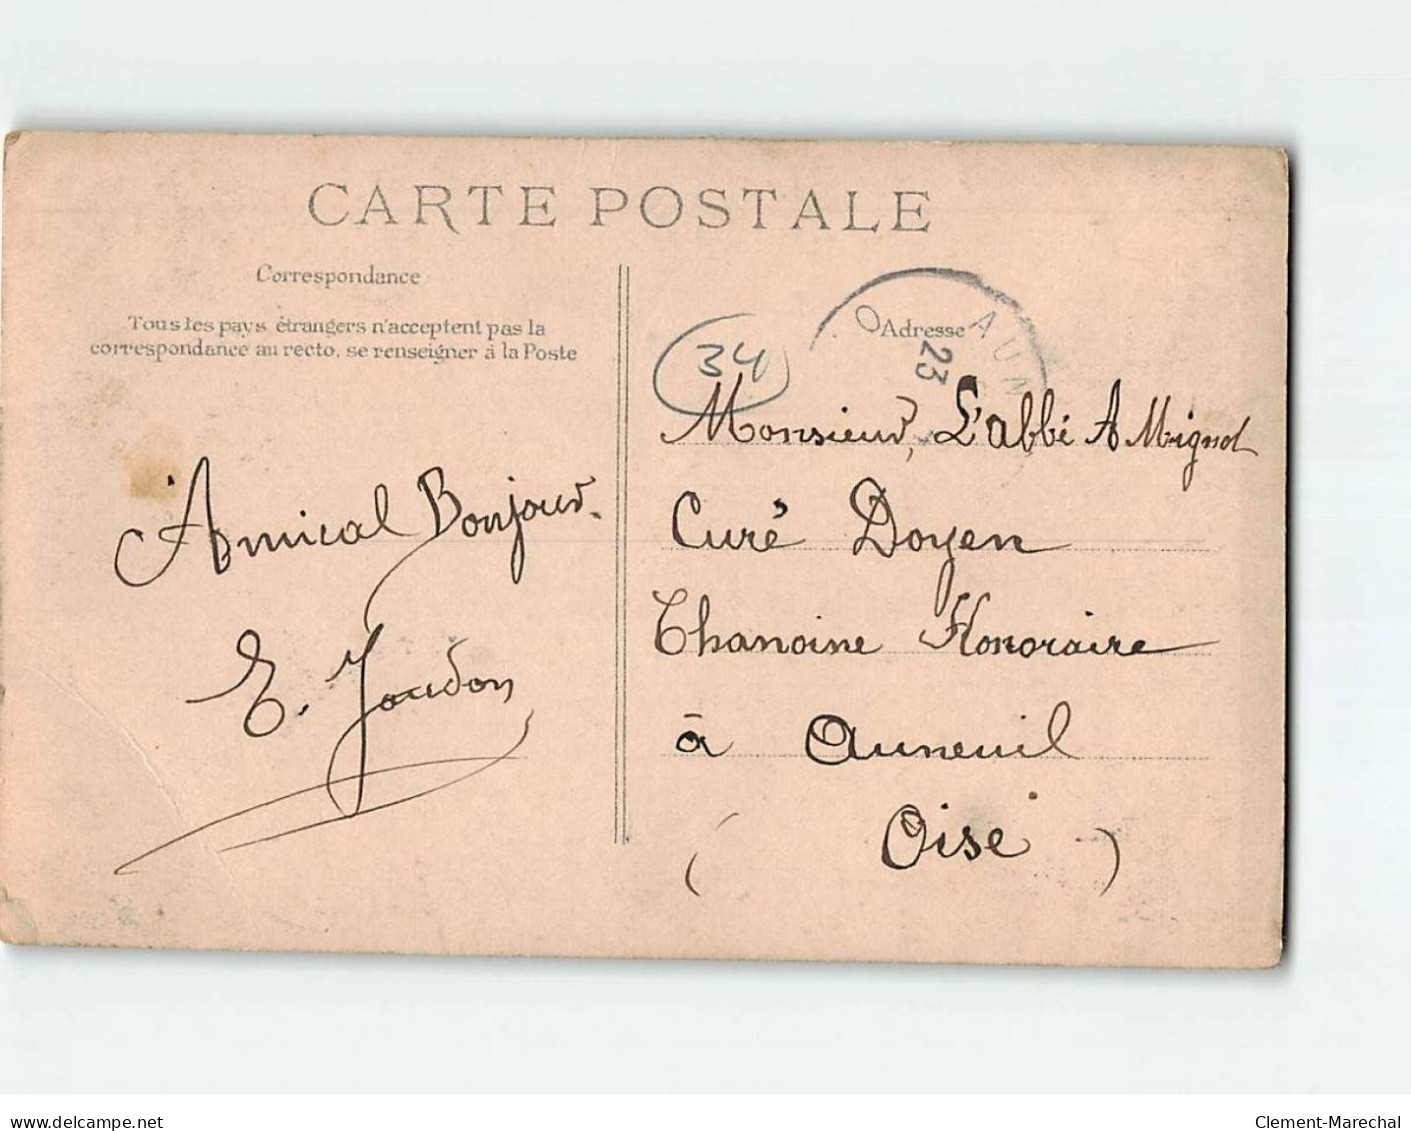 CARTE POSTALE
Correspondance
Tous les pays étrangers n'acceptent pas la
correspondance au recto, se renseigner à la Poste
Amical Bonjour.
E. Joudon
Adresse
O AUN
23
34
Monsieur, L'abbé A Mignot
Curé Doyen
Chanoine Honoraire
à Auneuil
( Oise )
delcampe.net
Clement-Marechal